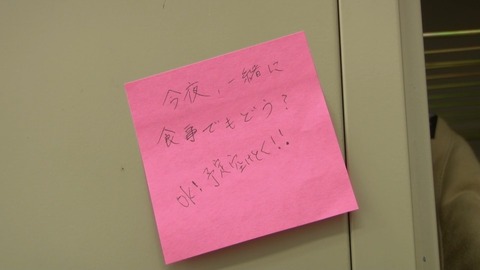 今夜、一緒に
食事でもどう？
OK！予定空けとく!!